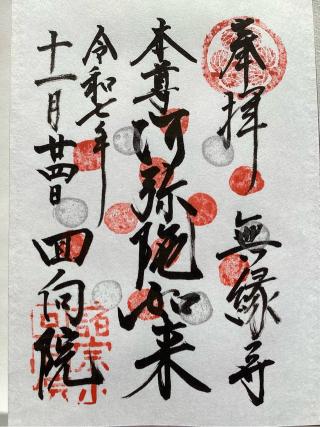 奉拝
無縁寺
本尊
阿弥陀如来
令和七年
十一月廿四日
回向院